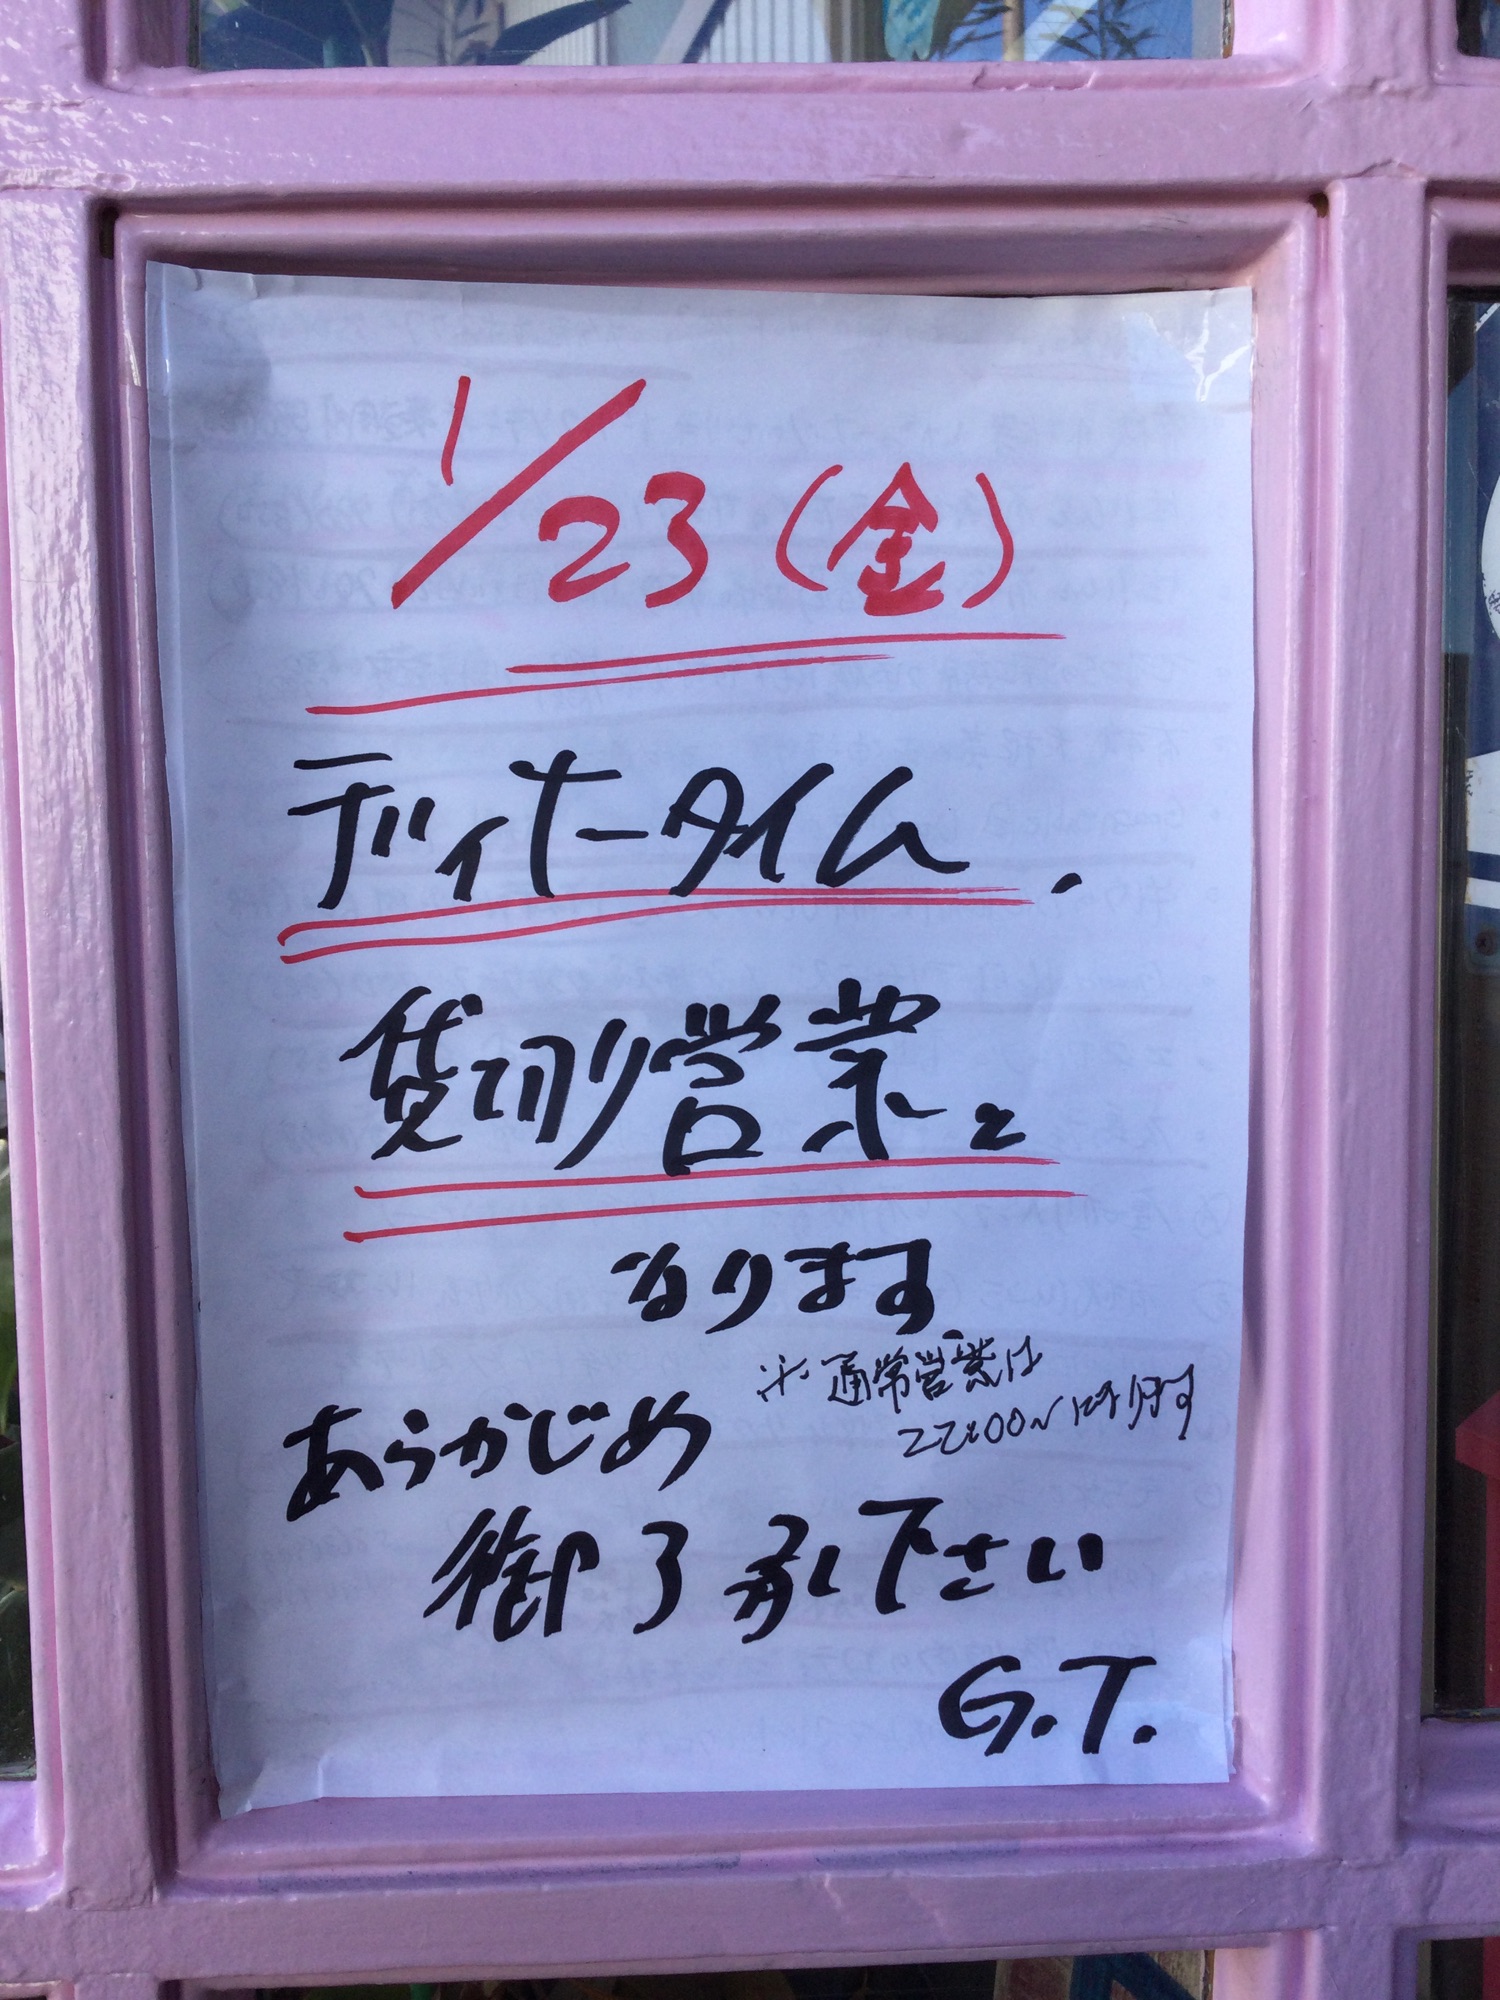 1/23(金)
ディナータイム、
貸切り営業と
なります
※通常営業は
22:00〜になります
あらかじめ
御了承下さい
G.T.